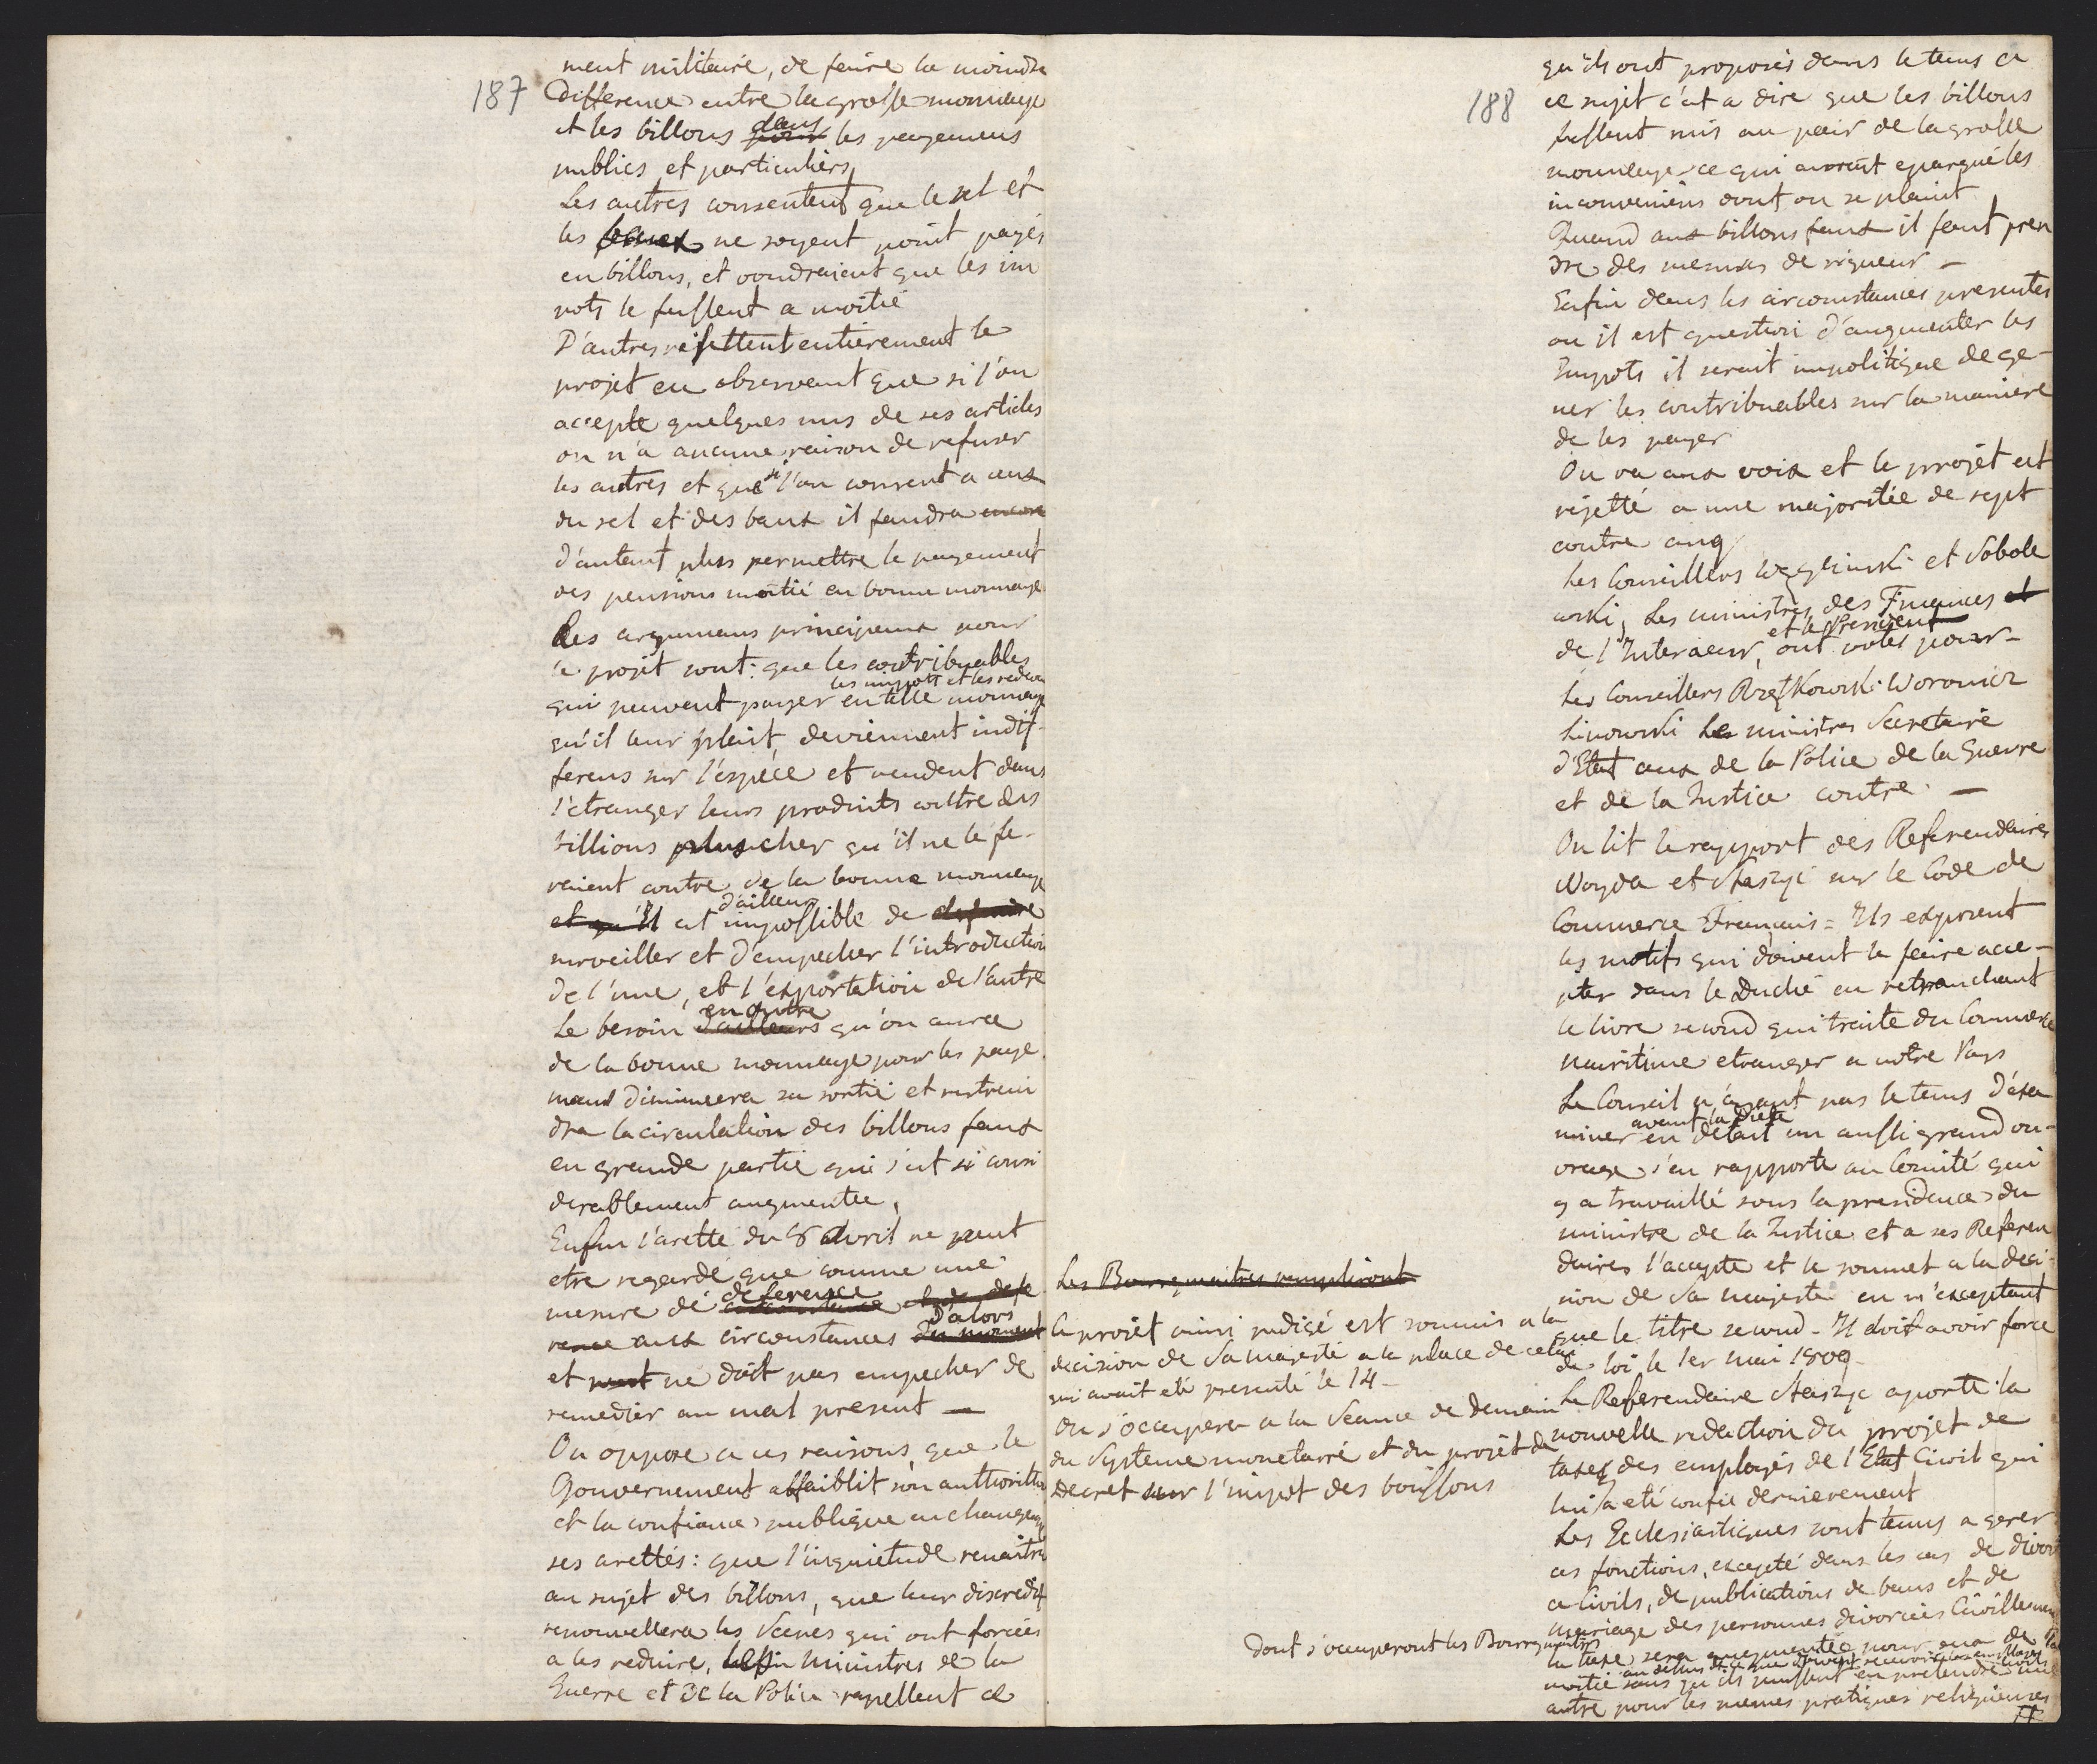 187
ment militaire, de faire la moindre
difference entre la grosse monnaye
et les billons pour dans les payemens
publics et particuliers
Les autres consentent que le sel et
les ne soyent point payés
en billons, et voudraient que les im
pots le fussent a moitié
D'autres rejettent entièrement le
projet en observant que si l'on
accepte quelques uns de ses articles
on n'a aucune raison de refuser
les autres et que si l'on consent a ceux
du sel et des baux il faudra encore
d'autant plus permettre le payement
des pensions moitié en bonne monnaye
Les argumens principaux pour
le projet sont: que les contribuables
les impots et les redev
qui peuvent payer en telle monnaye
qu'il leur plait, deviennent indif-
ferens sur l'espèce et vendent dans
l'etranger leurs produits contre des
billions plus cher qu'il ne le fe-
raient contre de la bonne monnaye
et qu'Il est d'ailleurs impossible de
surveiller et d'empecher l'introduction
de l'une, et l'exportation de l'autre
Le besoin d'ailleurs en outre qu'on aura
de la bonne monnaye pour les paye
mens diminuera sa sortie et restrein
dra la circulation des billons faux
en grande partie qui s'est si consi
derablement augmentée,
Enfin l'aretté du 6 Avril ne peut
etre regardé que comme une
mesure de circonstance deference et de defe
rence aux circonstances du moment d'alors
et peut ne doit pas empecher de
remedier au mal present —
On oppose a ces raisons, que le
Gouvernement affaiblit son authorité
et la confiance publique en changeant
ses arettés: que l'inquietude renaitra
au sujet des billons, que leur discredit
renouvellera les Scenes qui ont forcées
a les reduire, ministres de la
Guerre et de la Police rapellent ce
Les Bourgmaitres rempliront
Le projet ainsi redigé est soumis a la
decision de Sa Majesté a la place de celui
qui avait eté presenté le 14 -
On s'occupera a la Seance de demain
du Systeme monetaire et du projet de
Decret sur l'impot des boissons
dont s'occuperont les Bourgmaitres
188
qu'ils ont proposés dans le tems a
ce sujet c'est a dire que les billons
fussent mis au pair de la grosse
monnaye ce qui auroit epargné les
inconveniens dont on se plaint
Quand aux billons faux il faut pren
dre des mesures de rigueur —
Enfin dans les circonstances presentes
ou il est question d'augmenter les
Impots il serait impolitique de ge-
ner les contribuables sur la maniere
de les payer
On va aux voix et le projet est
rejetté a une majoritée de sept
contre cinq
Les Conseillers Węgliński et Sobole
wski, Les ministres des Finances et
de l'Interieur, et le President ont votés pour -
Les Conseillers Rzętkowski Woronicz
Linowski Les ministres Secretaire
d'Etat ceux de la Police de la Guerre
et de la Justice contre. —
On lit le rapport des Referendaires
Woyda et Staszyc sur le Code de
Commerce Français = Ils exposent
les motifs qui doivent le faire acce-
pter dans le Duché en retranchant
le livre second qui traite du Commerce
maritime etranger a notre Pays
Le Conseil n'ayant pas le tems d'exa
miner avant la Diete en detail un aussi grand ou-
vrage s'en rapporte au Comité qui
y a travaillé sous la presidence du
ministre de la Justice et a ses Referen
daires l'accepte et le soumet a la deci-
sion de Sa majesté en n'exceptant
que le titre second - Il doit avoir force
de loi le 1er mai 1809 -
Le Referendaire Staszyc aporte la
nouvelle redaction du projet de
taxes des employés de l'Etat Civil qui
lui a eté confié dernierement
Les Ecclesiastiques sont tenus a gerer
ces fonctions, excepté dans les cas de divor
ce Civils, de publications de bans et de
mariage des personnes divorcées Civillement
la taxe sera augmentée pour eux de la
moitié au dessus de ce que doivent recevoir les employés civils sans qu'ils puissent en pretendre une
autre pour les memes pratiques religieuses